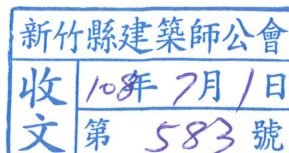 新竹縣建築師公會
收文
108年7月1日
第 583 號